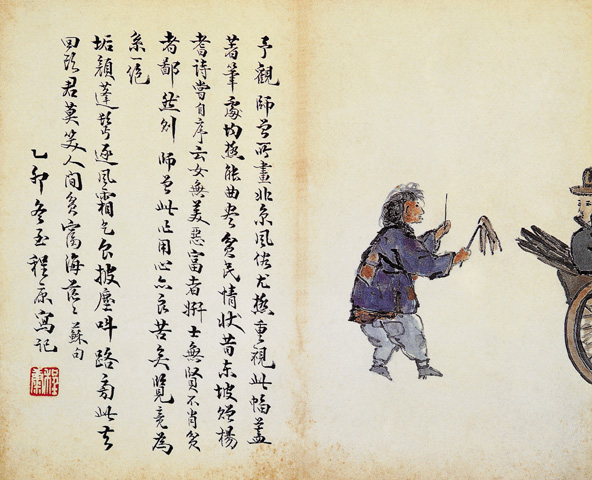 予觀師曾所畫北京風俗尤極重視此幅蓋
著筆處均極能曲盡貧民情狀昔東坡贈楊
耆詩嘗自序云女無美惡富者妍士無賢不肖貧
者鄙然則師曾此作用心亦良苦矣覽竟為
系一絕
垢顏蓬鬢逐風霜乞食披塵叫路旁此去
回頭君莫笑人間貧富海茫〻蘇句
乙卯冬至程康寫記
程康